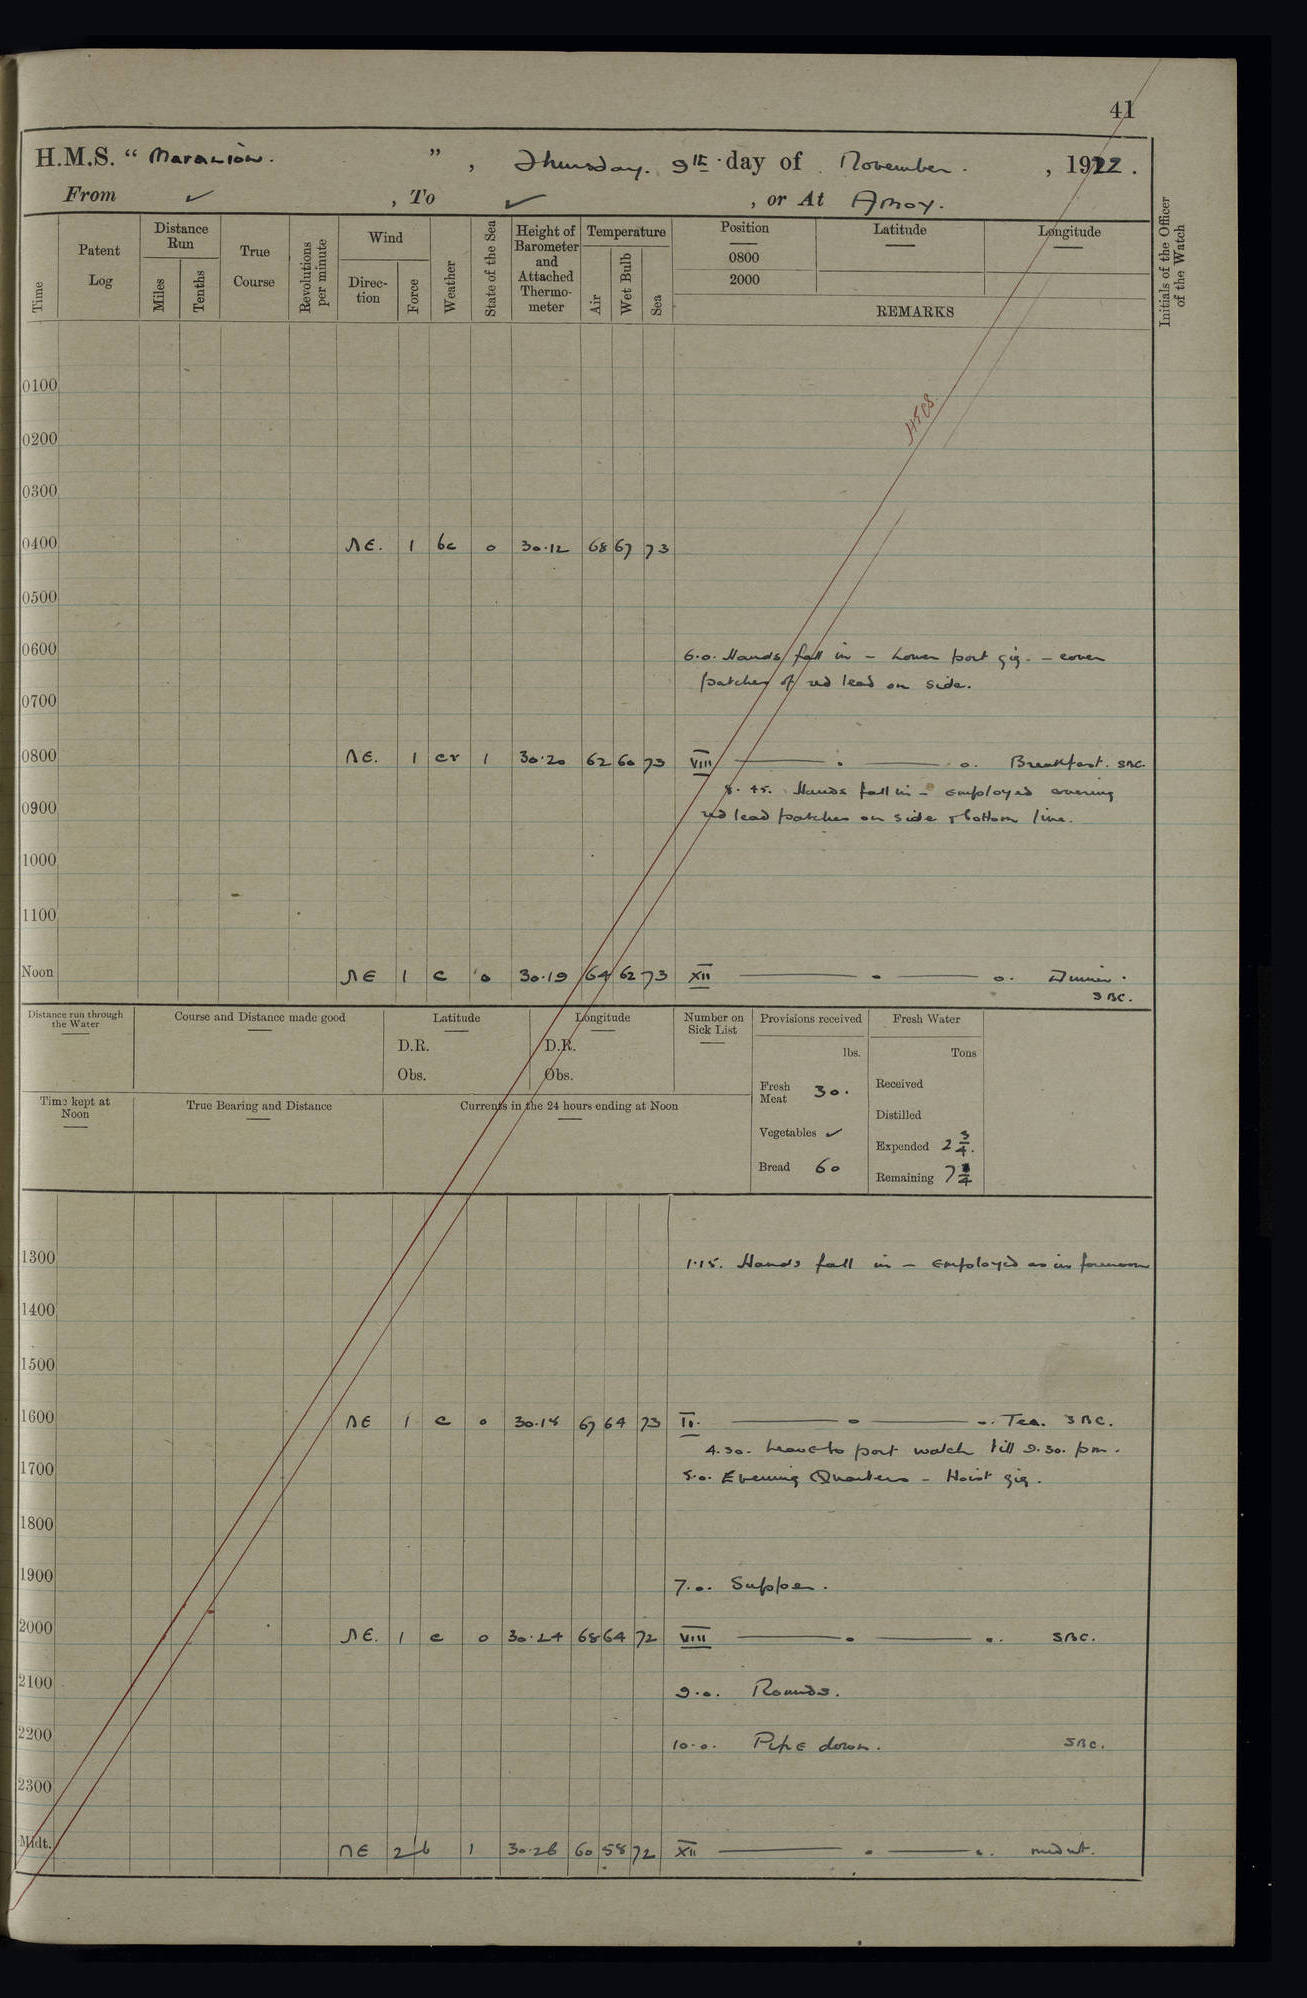 41
H.M.S. " Marazion. " , Thursday. 9th day of November. , 1922.
From ✓ , To ✓ , or At Amoy.
Time
Patent Log
Distance Run
Miles
Tenths
True Course
Revolutions per minute
Wind
Direction
Force
Weather
State of the Sea
Height of Barometer and Attached Thermometer
Temperature
Air
Wet Bulb
Sea
Position
0800
2000
Latitude
Longitude
REMARKS
Initials of the Officer of the Watch
0100
0200
0300
0400 NE. 1 bc 0 30.12 68 67 73
0500
0600 6.0. Hands fall in - Lower port gig. - cover
patches of red lead on side.
0700
0800 NE. 1 cr 1 30.20 62 60 73 VIII Breakfast. SBC.
8.45. Hands fall in - employed covering
0900
red lead patches on side & bottom line.
1000
1100
Noon NE 1 c 0 30.19 64 62 73 XII Dinner.
SBC.
Distance run through the Water
Course and Distance made good
Latitude
D.R.
Obs.
Longitude
D.R.
Obs.
Number on Sick List
Provisions received
lbs.
Fresh Meat 30.
Vegetables ✓
Bread 60
Fresh Water
Tons
Received
Distilled
Expended 2 3/4.
Remaining
Time kept at Noon
True Bearing and Distance
Currents in the 24 hours ending at Noon
1300 1.15. Hands fall in - employed as in forenoon
1400
1500
1600 NE 1 c 0 30.18 67 64 73 Tea. SBC.
4.30. Leave to port watch till 9.30. pm.
1700 5.0. Evening Quarters - Hoist gig.
1800
1900 7.0. Supper.
2000 NE. 1 c 0 30.24 68 64 72 VIII SBC.
2100 9.0. Rounds.
2200 10.0. Pipe down. SBC.
2300
Midt. NE 2 b 1 30.26 60 58 72 XII midnt.